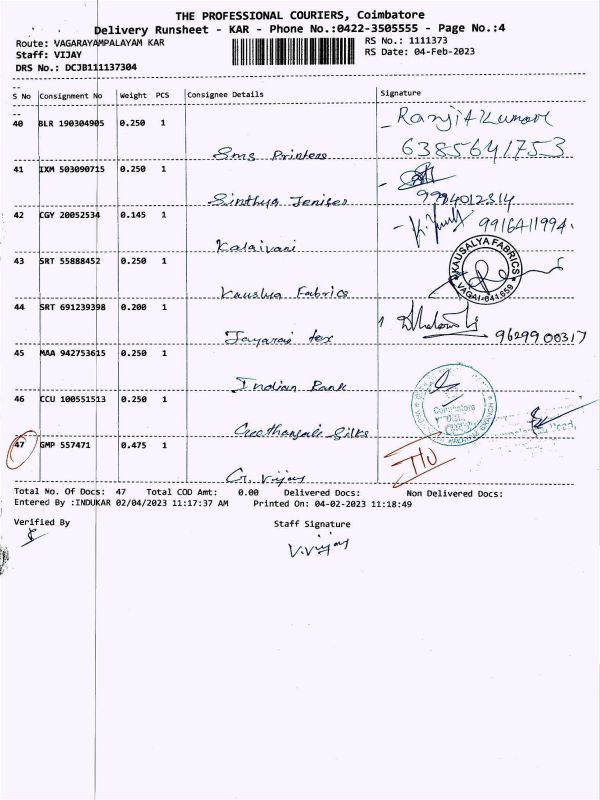 THE PROFESSIONAL COURIERS, Coimbatore
Delivery Runsheet - KAR - Phone No.:0422-3505555 - Page No.:4
Route: VAGARAYAMPALAYAM KAR
RS No.: 1111373
Staff: VIJAY
RS Date: 04-Feb-2023
DRS No.: DCJB111137304
S No Consignment No Weight PCS Consignee Details Signature
40 BLR 190304905 0.250 1
Ranjit Kumar
Sms Printers
6385641753
41 IXM 503090715 0.250 1
Sinthya Jenifer
9994012314
42 CGY 20052534 0.145 1
9916411994.
Kalaivani
43 SRT 55888452 0.250 1
KAUSALYA FABRICS
VAGAI-641 659
Kauslya Fabrics
44 SRT 691239398 0.200 1
Jayaraj tex
9629900317
45 MAA 942753615 0.250 1
Indian Bank
46 CCU 100551513 0.250 1
Coimbatore
Geethanjali Silks
47 GMP 557471 0.475 1
G. Vijay
Total No. Of Docs: 47 Total COD Amt: 0.00 Delivered Docs: Non Delivered Docs:
Entered By :INDUKAR 02/04/2023 11:17:37 AM Printed On: 04-02-2023 11:18:49
Verified By Staff Signature
V.Vijay